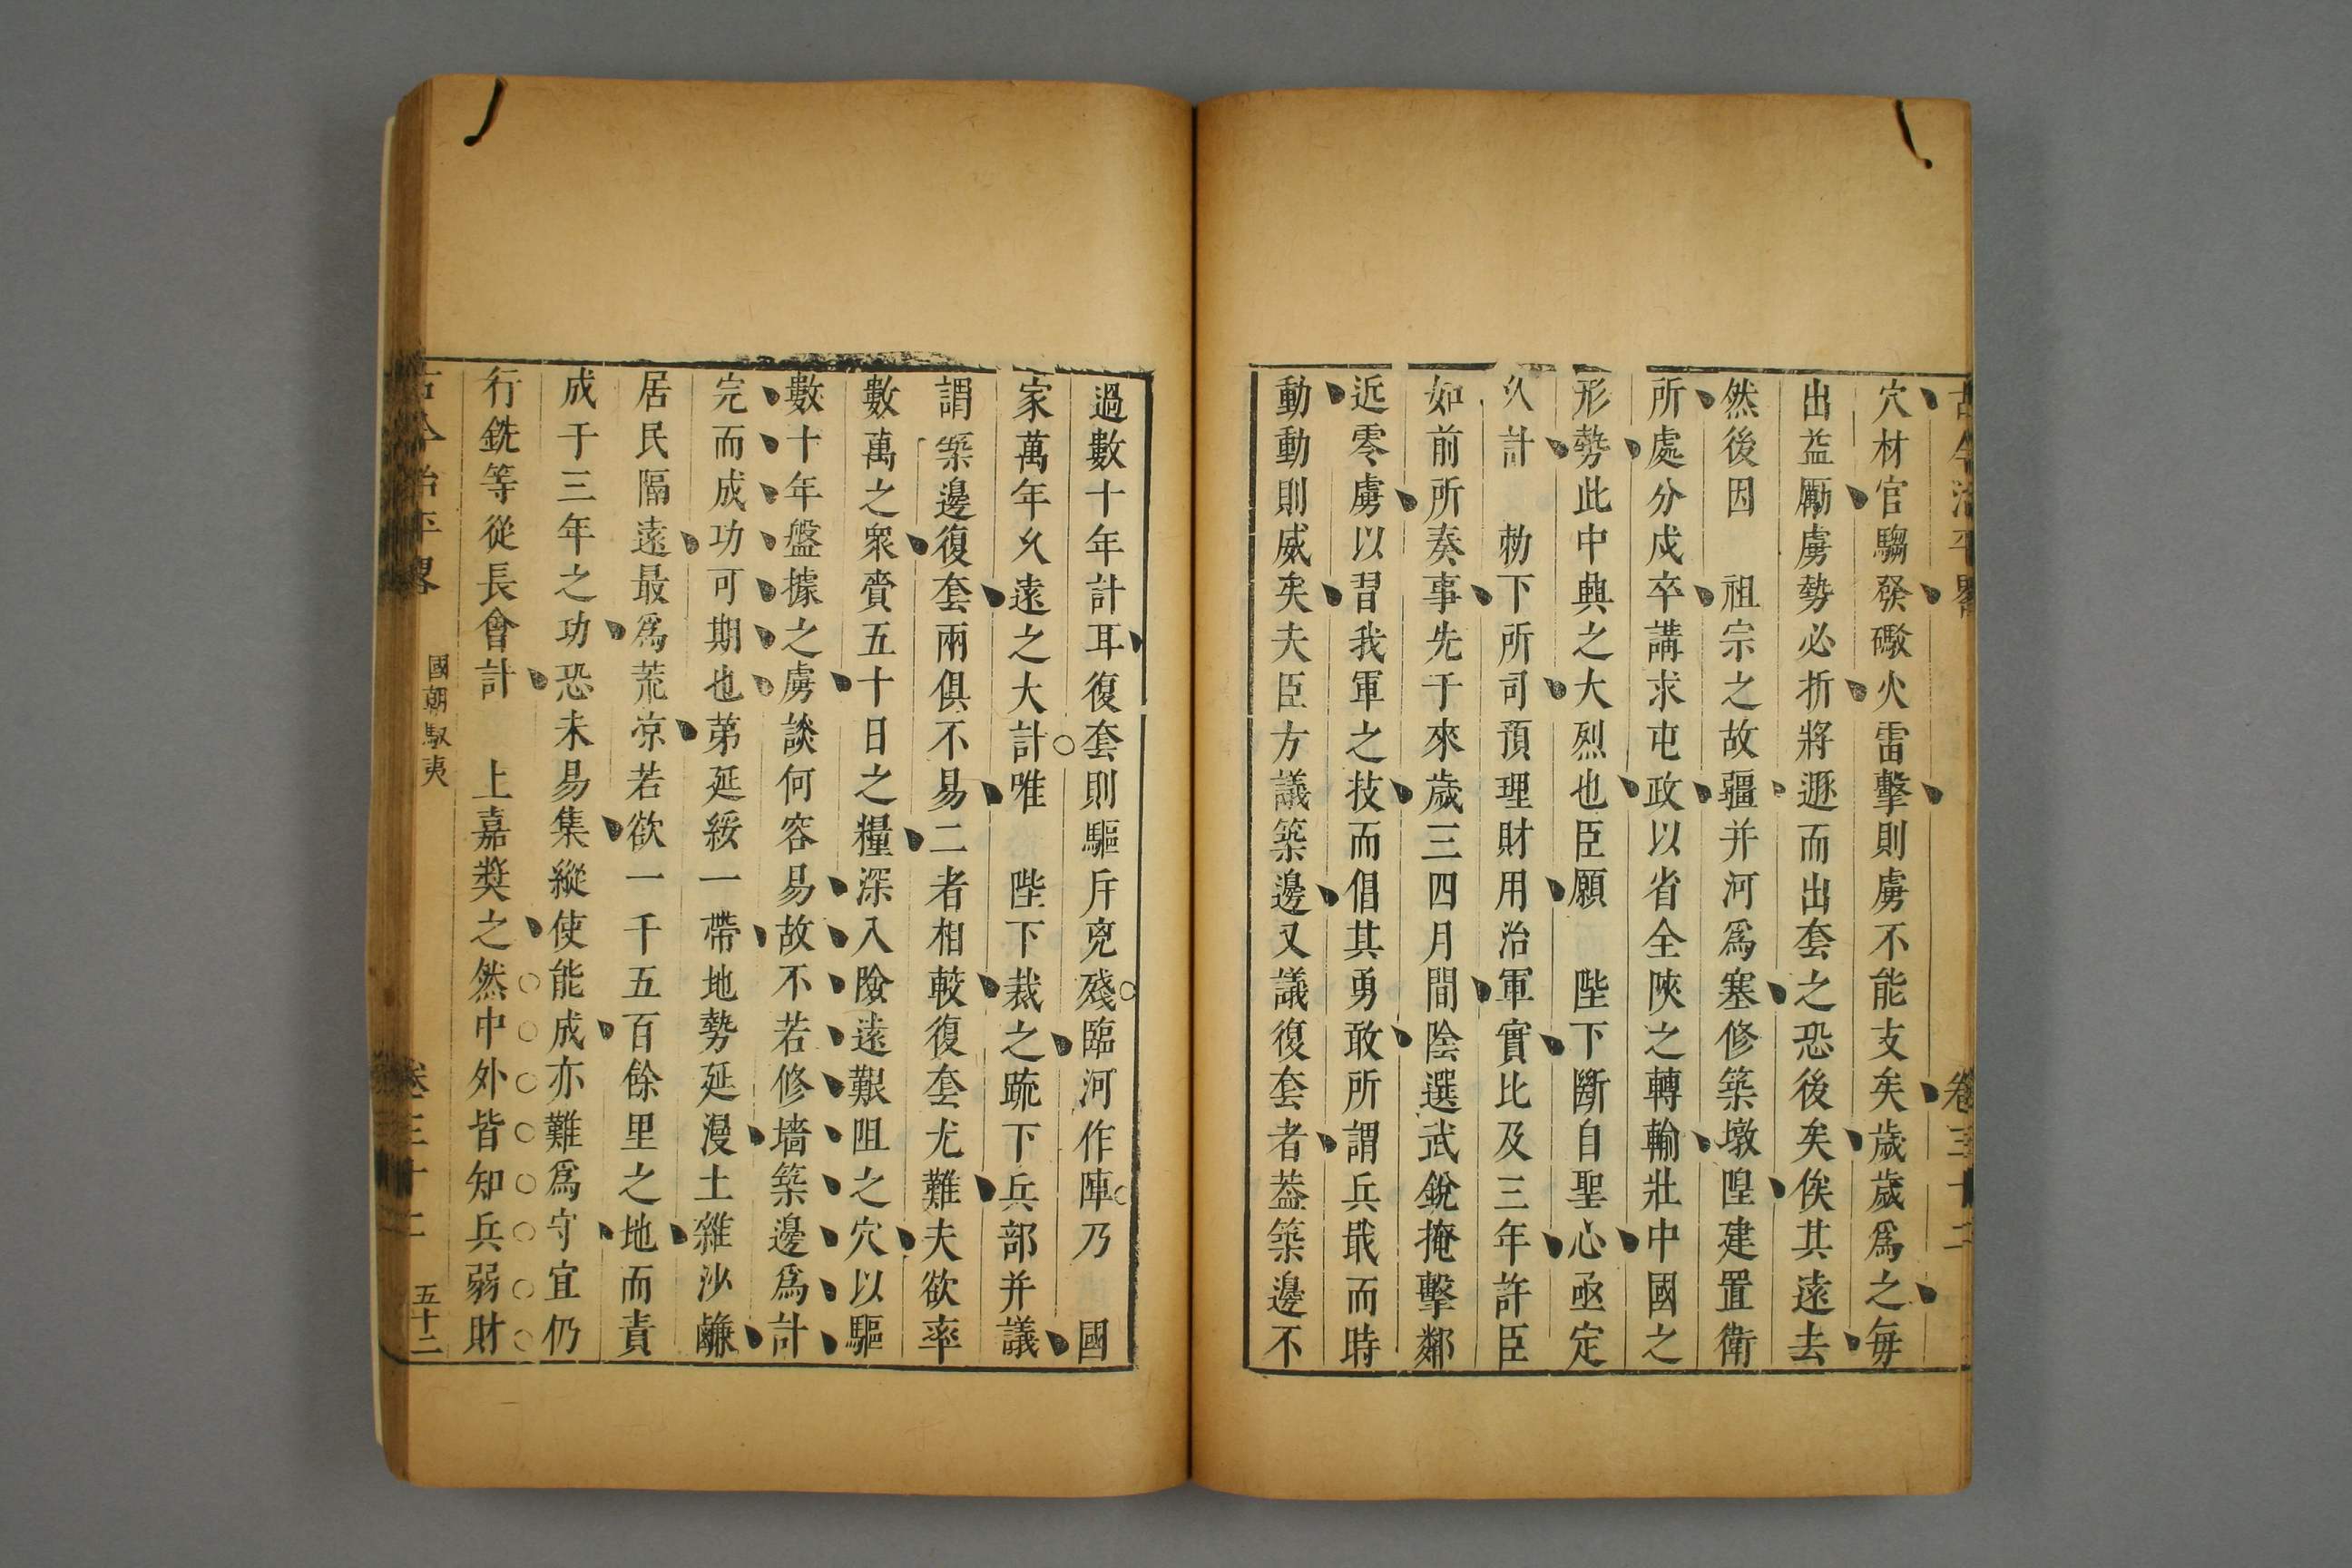 古今治平畧 卷三十二
穴材官騶發礮火雷擊則虜不能支矣歲歲爲之每
出益勵虜勢必折將遯而出套之恐後矣俟其遠去
然後因 祖宗之故疆并河爲塞修築墩隍建置衛
所處分戍卒講求屯政以省全陝之轉輸壯中國之
形勢此中興之大烈也臣願 陛下斷自聖心亟定
久計 勑下所司預理財用治軍實比及三年許臣
如前所奏事先于來歲三四月間陰選武銳掩擊鄰
近零虜以習我軍之技而倡其勇敢所謂兵戢而時
動動則威矣夫臣方議築邊又議復套者葢築邊不
過數十年計耳復套則驅斥兇殘臨河作陣乃 國
家萬年久遠之大計唯 陛下裁之疏下兵部并議
謂築邊復套兩俱不易二者相較復套尤難夫欲率
數萬之衆賫五十日之糧深入險遠艱阻之穴以驅
數十年盤據之虜談何容易故不若修墻築邊爲計
完而成功可期也第延綏一帶地勢延漫土雜沙鹻
居民隔遠最爲荒凉若欲一千五百餘里之地而責
成于三年之功恐未易集縱使能成亦難爲守宜仍
行銑等從長會計 上嘉奬之然中外皆知兵弱財
古今治平畧 國朝馭夷 卷三十二 五十二